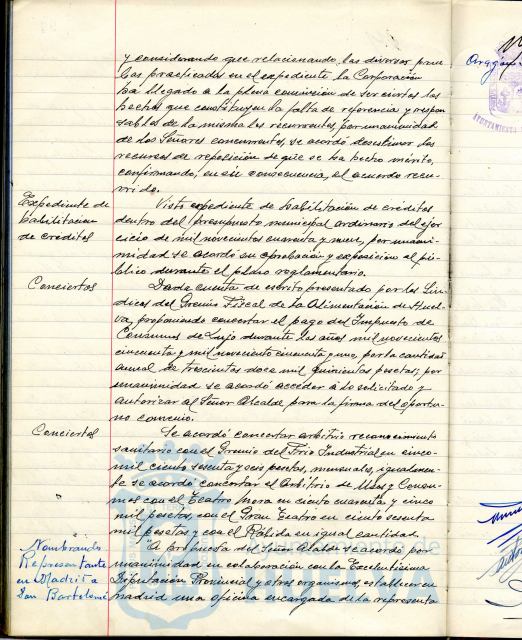 y considerando que relacionando las diversas prue
bas practicadas en el expediente la Corporación
ha llegado a la plena convicción de ser ciertos los
hechos que constituyen la falta de referencia y respon
sables de la misma los recurrentes, por unanimidad
de los Señores concurrentes, se acordó desestimar los
recursos de reposición de que se ha hecho mérito,
confirmando, en su consecuencia, el acuerdo recu-
rrido.
Expediente de
habilitación
de créditos
Visto expediente de habilitación de créditos
dentro del presupuesto municipal ordinario del ejer
cicio de mil novecientos cuarenta y nueve, por unani-
midad se acordó su aprobación y exposición al pú-
blico durante el plazo reglamentario.
Conciertos
Dada cuenta de escrito presentado por los Sín-
dicos del Gremio Fiscal de la Alimentación de Huel-
va, proponiendo concertar el pago del Impuesto de
Consumos de Lujo durante los años mil novecientos
cincuenta y mil novecientos cincuenta y uno, por la cantidad
anual de trescientas doce mil quinientas pesetas, por
unanimidad se acordó acceder a lo solicitado y
autorizar al Señor Alcalde para la firma del oportu-
no convenio.
Conciertos
Se acordó concertar arbitrio reconocimiento
sanitario con el Gremio del Frio Industrial en cinco
mil ciento sesenta y seis pesetas, mensuales, igualmen
te se acordó concertar el Arbitrio de Usos y Consu-
mos con el Teatro Mora en ciento cuarenta y cinco
mil pesetas, con el Gran Teatro en ciento sesenta
mil pesetas y con el Rábida en igual cantidad.
Nombrando
Representante
en Madrid a
San Bartolomé
A propuesta del Señor Alcalde se acordó por
unanimidad en colaboración con la Excelentísima
Diputación Provincial y otros organismos, establecer en
Madrid una oficina encargada de la representa